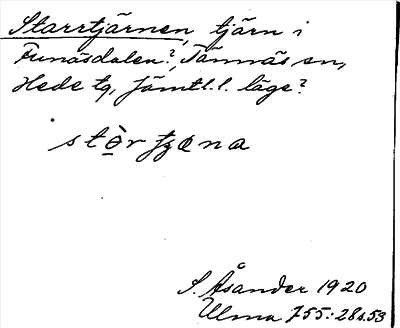 Starrtjärnen, tjärn i
Funäsdalen?, Tännäs sn,
Hede tg, Jämtl. l. läge?
stòrtjæna
S. Åsander 1920
Ulma 755: 28 s. 53